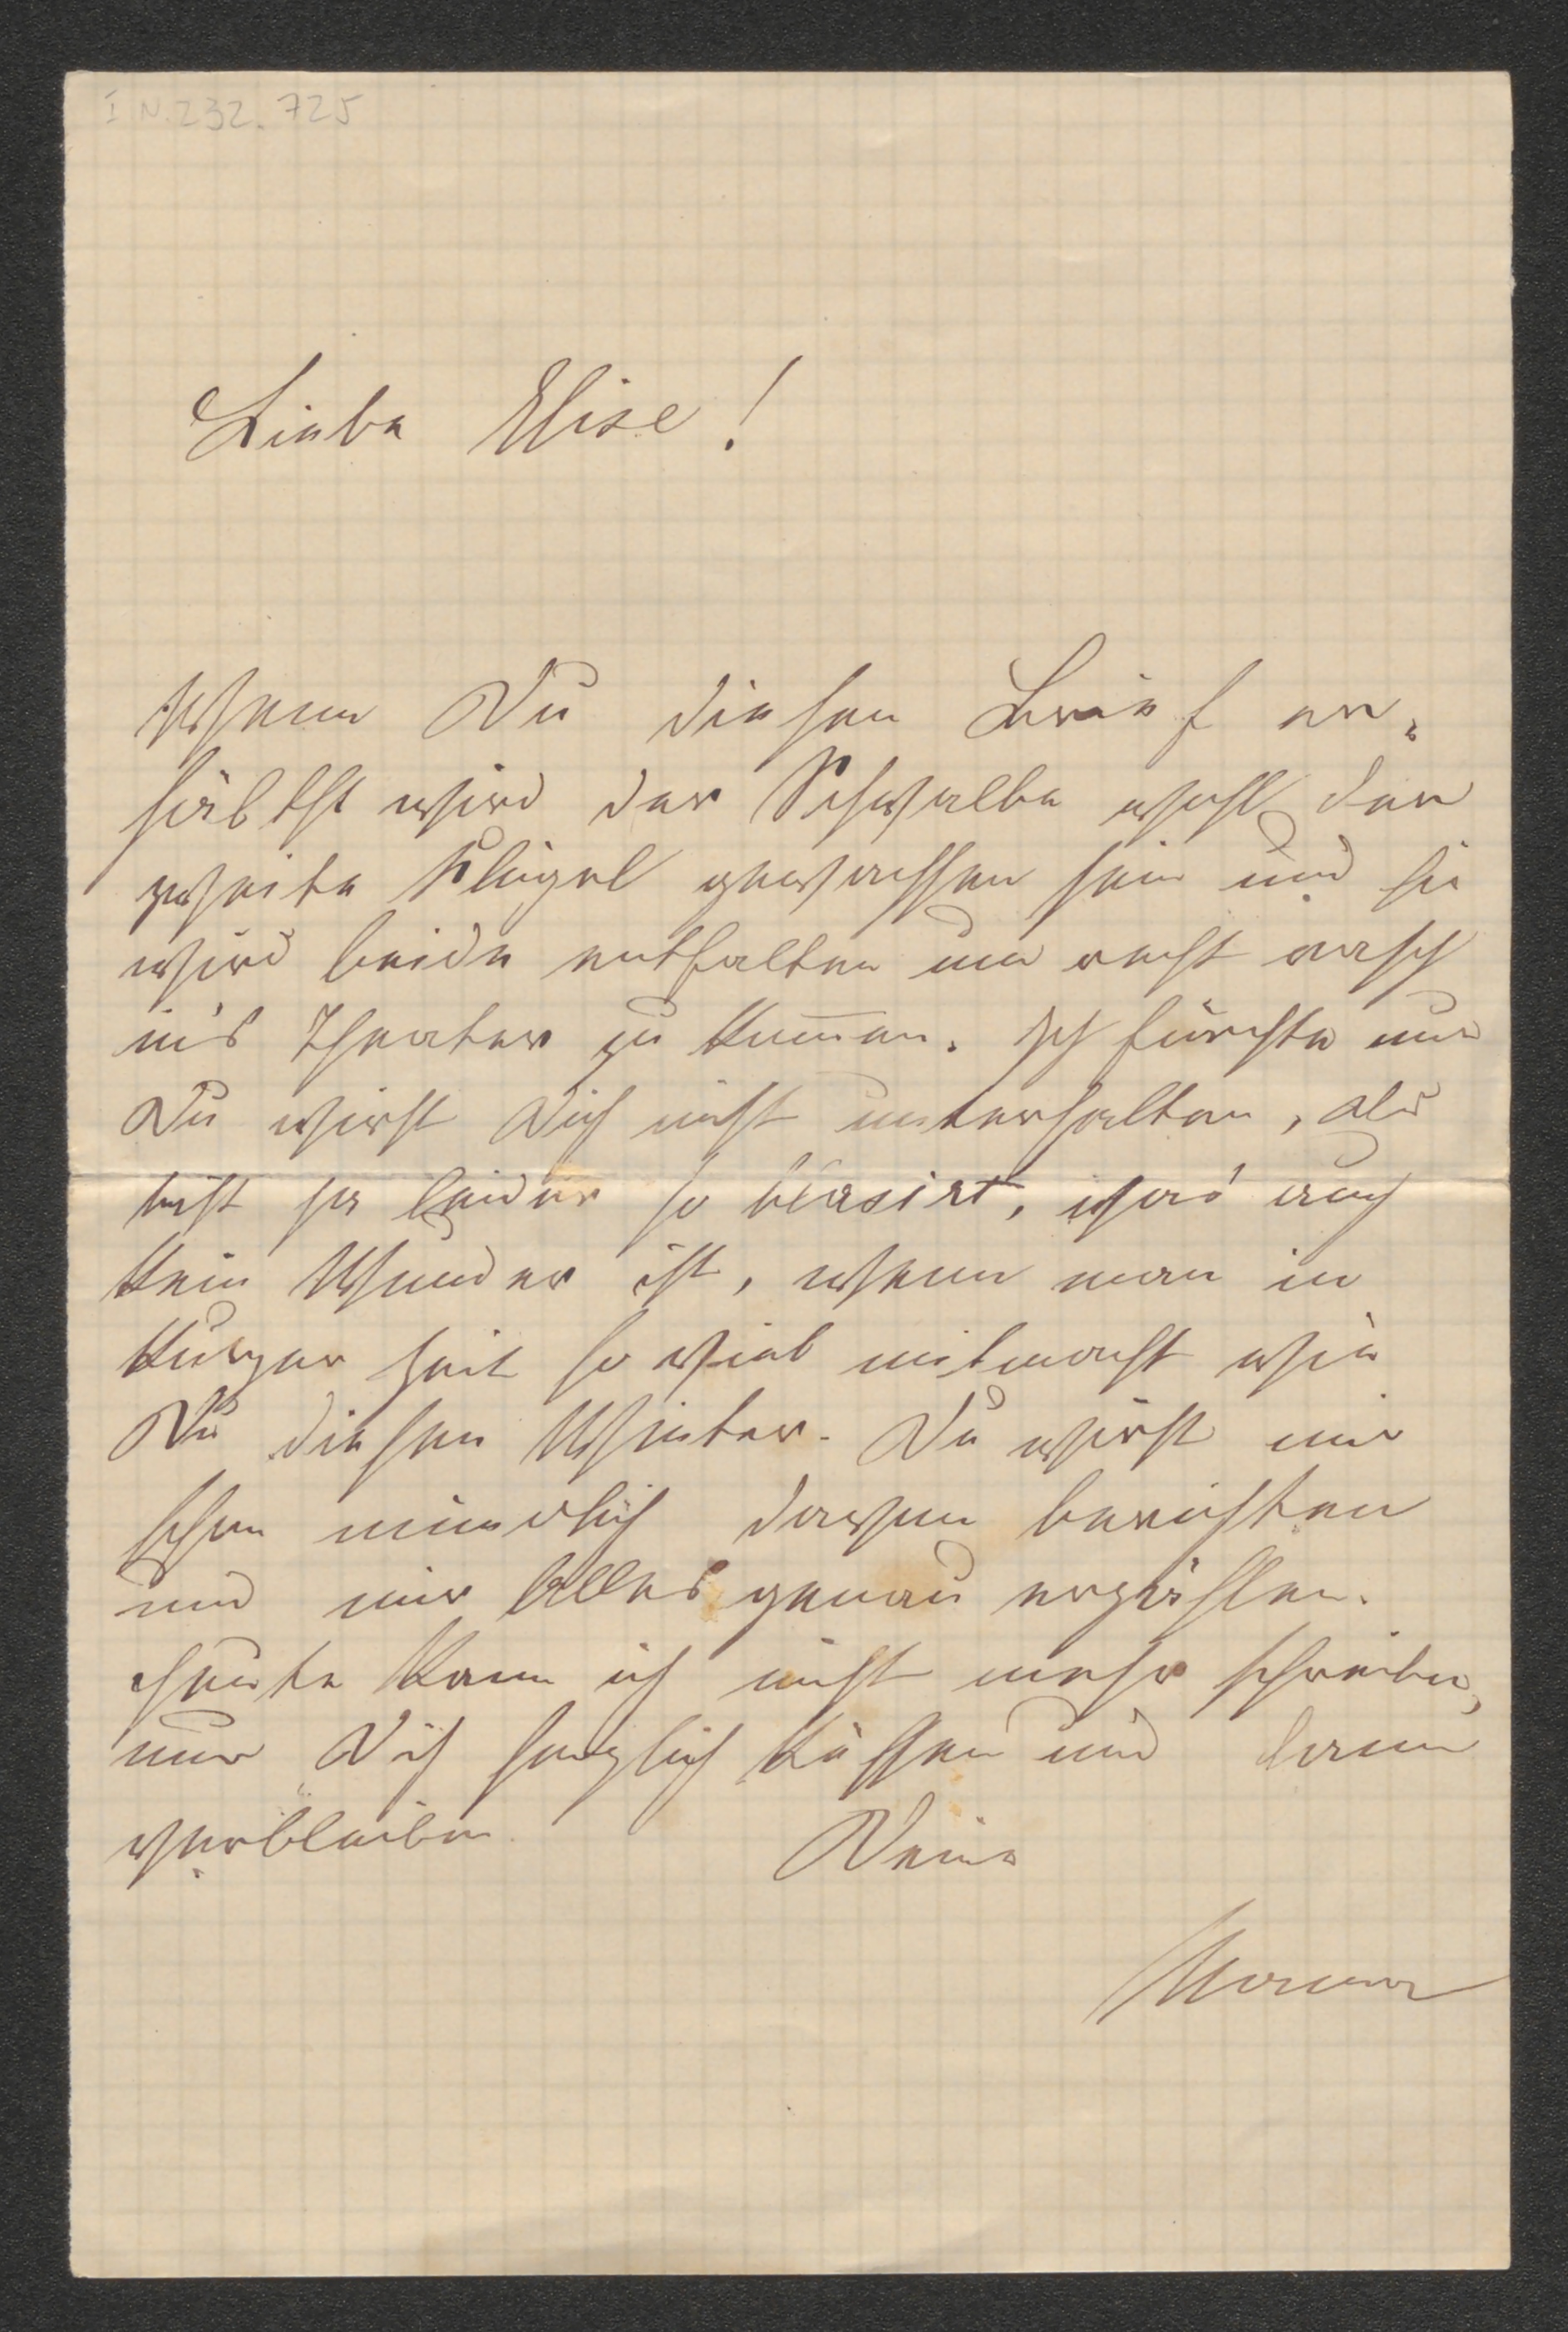 I N. 232.725
Liebe Elise!
Wenn Du diesen Brief er-
hältst wird der Schwalbe wohl der
zweite Flügel gewachsen sein und sie
wird beide entfalten um recht rasch
in's Theater zu kom̅en. Ich fürchte nur
Du wirst Dich nicht unterhalten, Du
bist ja leider so blasirt, was auch
kein Wunder ist, wenn man in
kurzer Zeit so viel mitmacht wie
Du diesen Winter. Du wirst mir
schon mündlich davon berichten
und mir Alles genau erzählen.
Heute kann ich nicht mehr schreiben,
nur Dich herzlich küssen und dann
verbleiben Deine
Mama